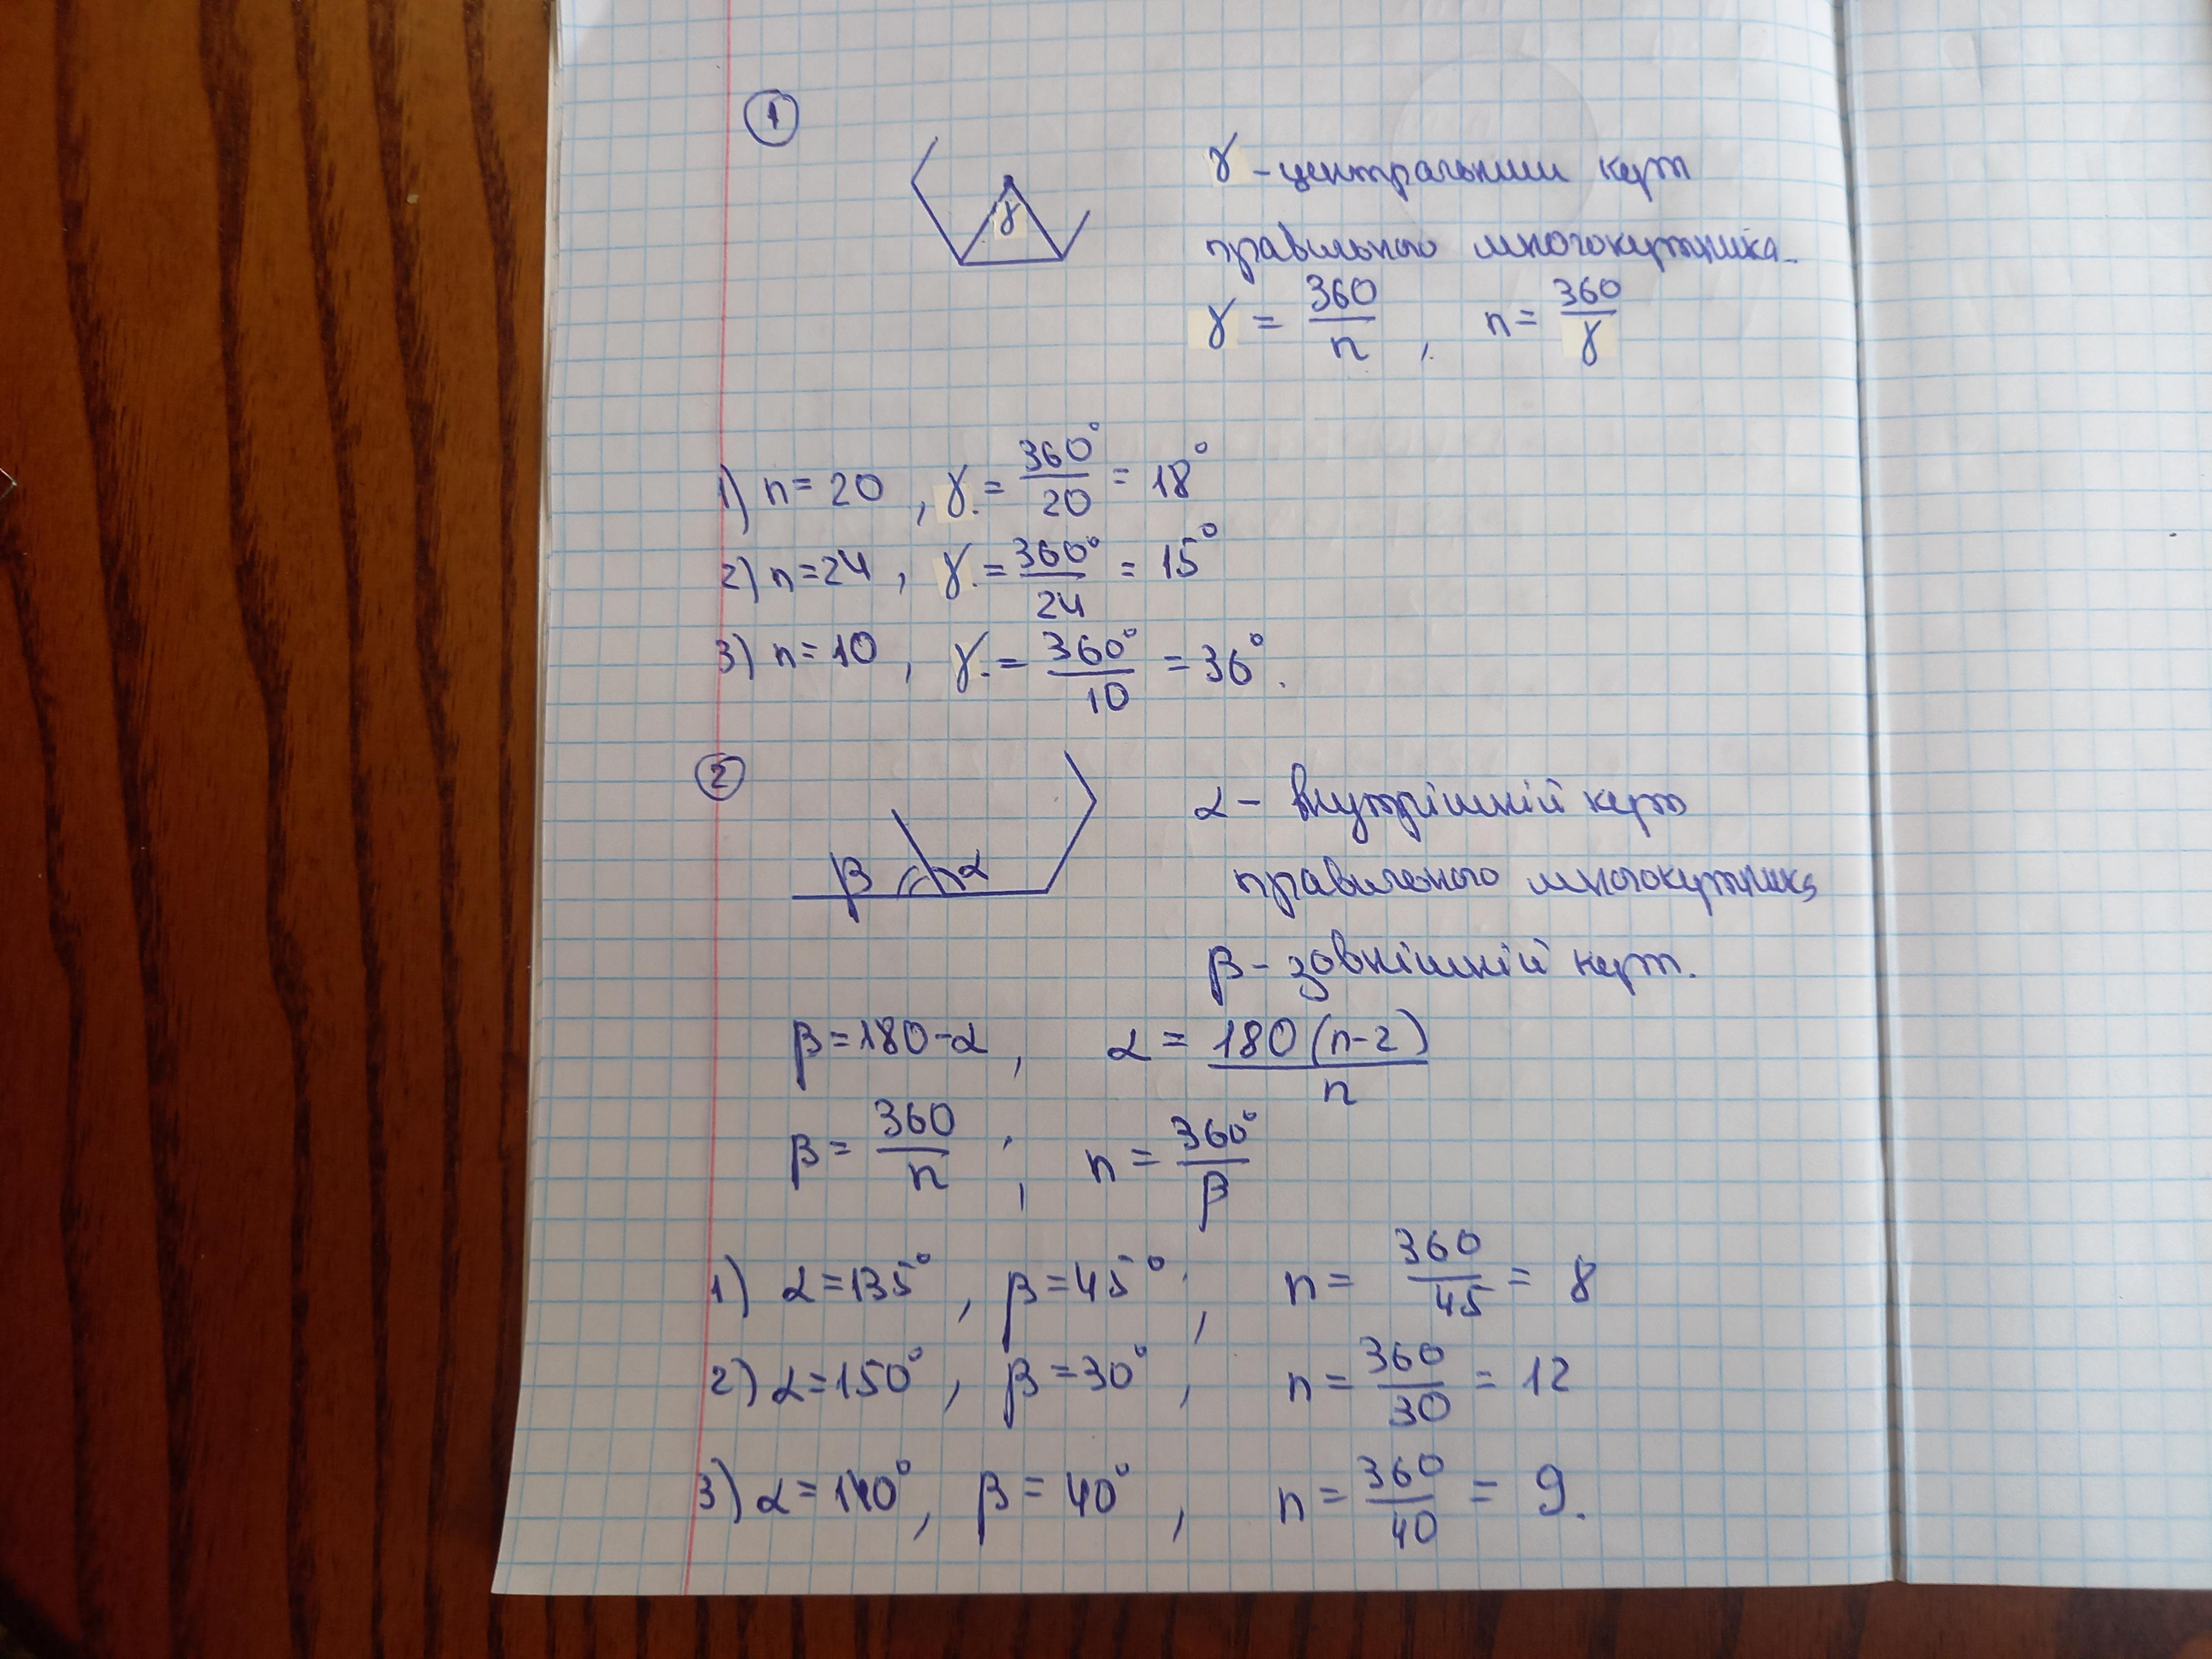 1
γ - центральний кут
γ
правильного многокутника.
γ = 360/n , n = 360/γ
1) n = 20 , γ = 360°/20 = 18°
2) n = 24 , γ = 360°/24 = 15°
3) n = 10 , γ = 360°/10 = 36°.
2
α - внутрішній кут
β α
правильного многокутника
β - зовнішній кут.
β = 180 - α , α = 180(n-2)/n
β = 360/n ; n = 360°/β
1) α = 135° , β = 45° , n = 360/45 = 8
2) α = 150° , β = 30° , n = 360/30 = 12
3) α = 140° , β = 40° , n = 360/40 = 9.